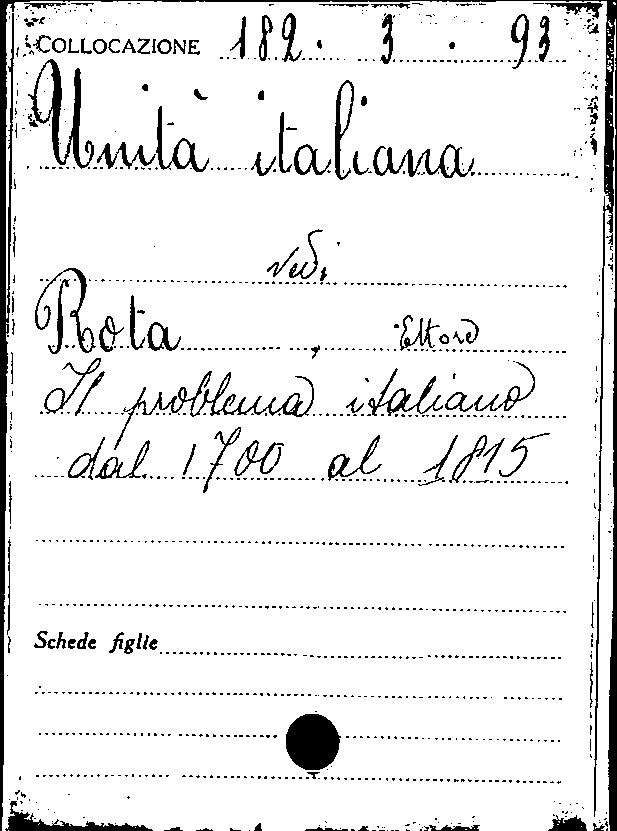 COLLOCAZIONE 182. 3. 93
Unità italiana
vedi
Rota, Ettore
Il problema italiano
dal 1700 al 1815
Schede figlie